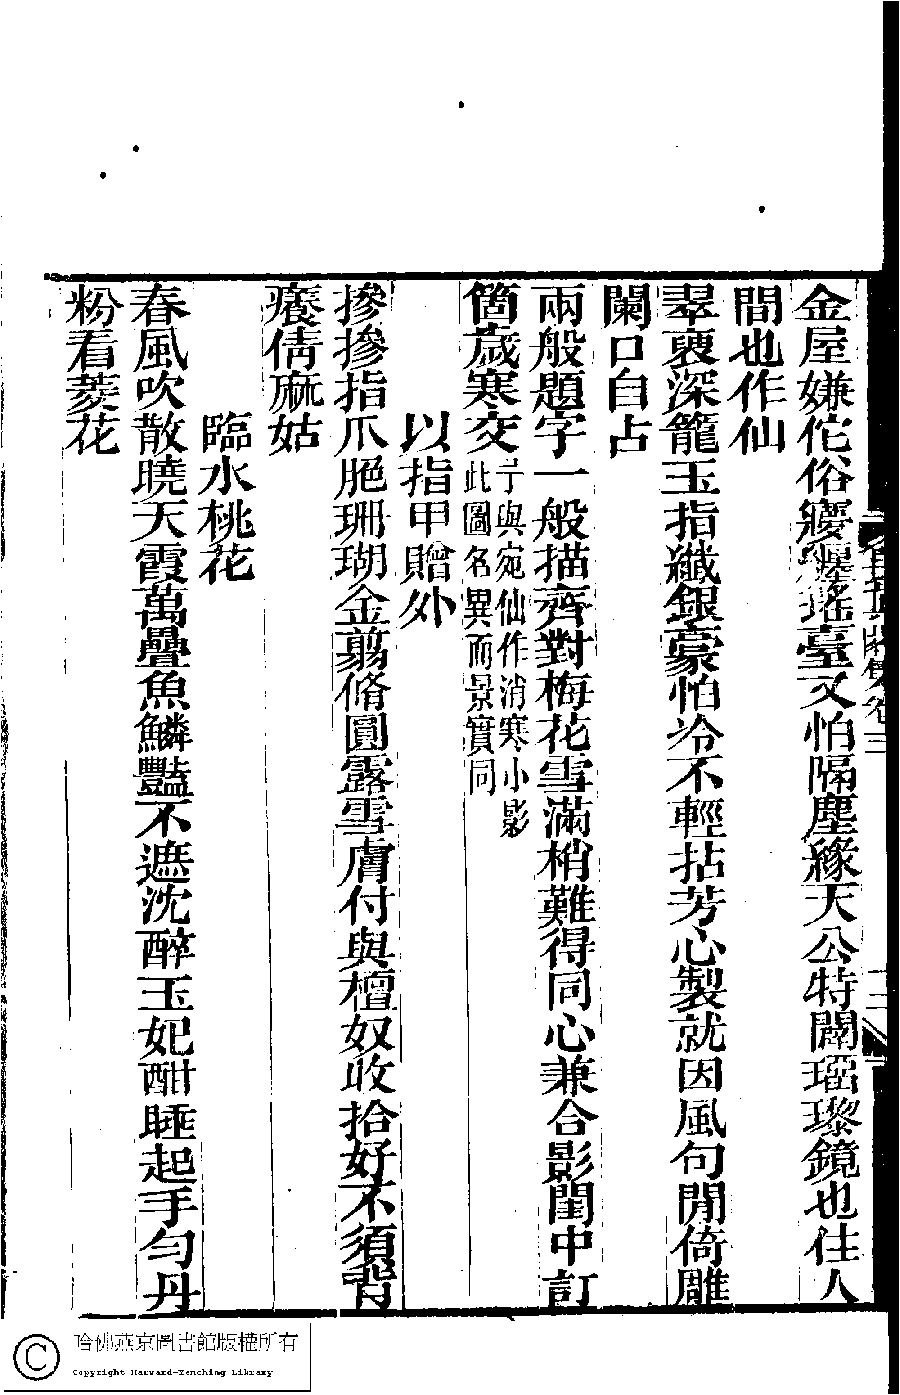 金屋嫌佗俗孊瑤臺又怕隔塵緣天公特闢瑠瓈鏡也住人
間也作仙
翠裒深籠玉指纖銀豪怕冷不輕拈芳心製就因風句閒倚雕
闌口自占
兩般題字一般描齊對梅花雪滿梢難得同心兼合影閨中訂
箇歲寒交 予與宛仙作消寒小影
此圖名異而景實同
以指甲贈外
摻摻指爪脃珊瑚金翦脩圓露雪膚付與檀奴收拾好不須背
癢倩麻姑
臨水桃花
春風吹散曉天霞萬疊魚鱗豔不遮沈醉玉妃酣睡起手勻丹
粉看菱花
三
哈佛燕京圖書館版權所有
Copyright Harvard-Yenching Library